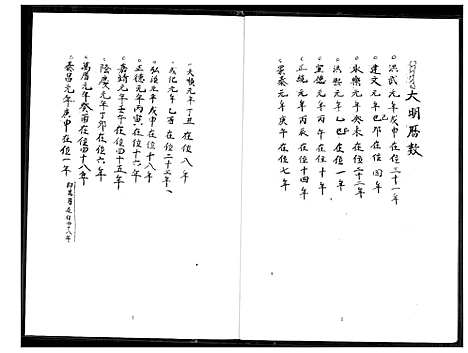 大明曆數
洪武元年戊申在位三十一年
建文元年己卯在位四年
永樂元年癸未在位二十二年
洪熙元年乙巳在位一年
宣德元年丙午在位十年
正統元年丙辰在位十四年
景泰元年庚午在位七年
天順元年丁丑在位八年
成化元年乙酉在位二十三年
弘治元年戊申在位十八年
正德元年丙寅在位十六年
嘉靖元年壬午在位四十五年
隆慶元年丁卯在位六年
萬曆元年癸酉在位四十八年
泰昌元年庚申在位一年
即萬曆在位四十八年